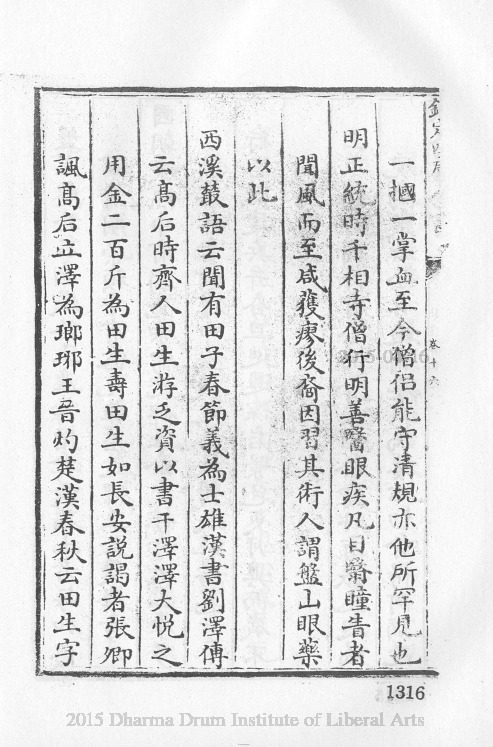 一摑一掌血至今僧侣能守清規亦他所罕見也
明正統時千相寺僧行明善醫眼疾凡目翳瞳眚者
聞風而至咸獲瘳後裔因習其術人謂盤山眼藥
以此
西溪叢語云聞有田子春節義為士雄漢書劉澤傳
云髙后時齊人田生游乏資以書干澤澤大悅之
用金二百斤為田生壽田生如長安説謁者張卿
諷髙后立澤為瑯琊王晉灼楚漢春秋云田生字
卷十六
1316
2015 Dharma Drum Institute of Liberal Arts